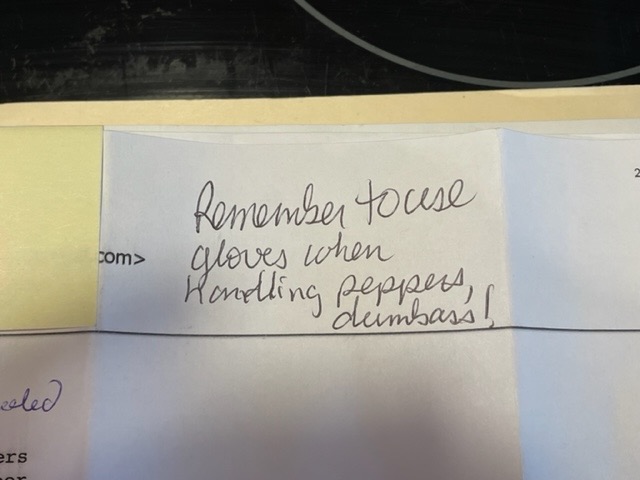 2
Remember to use
com>
gloves when
handling peppers,
dumbass!
eeled
ers